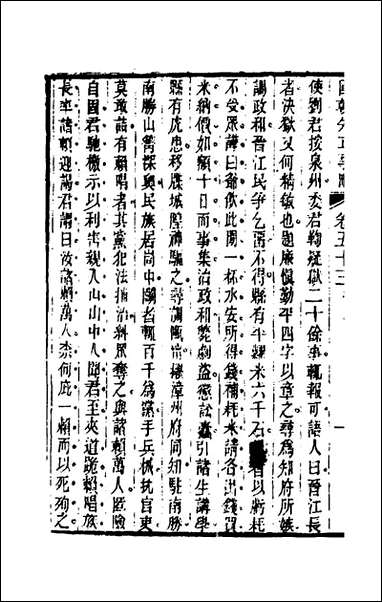 國朝先正事略 卷五十三 一
使劉君按泉州委君鞫疑獄二十餘事輒報可語人曰晉江長
者決獄又何精敏也題廉慎勤平四字以章之尋爲知府所嫉
調政和晉江民爭乞留不得縣有平糶米六千石 者以將耗
不受眾譁曰爺飲此閒一杯水安所得錢補耗米請各出錢買
米納價如額十日而事集治政和獘劇盜懲訟蠹引諸生講學
縣有虎患移牒城隍神驅之尋調甌甯擢漳州府同知駐南勝
南勝山菁深奧民族居尚中鬭者輒百千爲黨手兵械抗官吏
莫敢詰有賴唱者其黨犯法捕治糾眾奪之與諸賴萬人匿險
自固君馳檄示以利害親入山山中人聞君至夾道跪賴唱族
長率諸賴迎謁君謂曰汝諸賴萬人柰何庇一賴而以死殉之